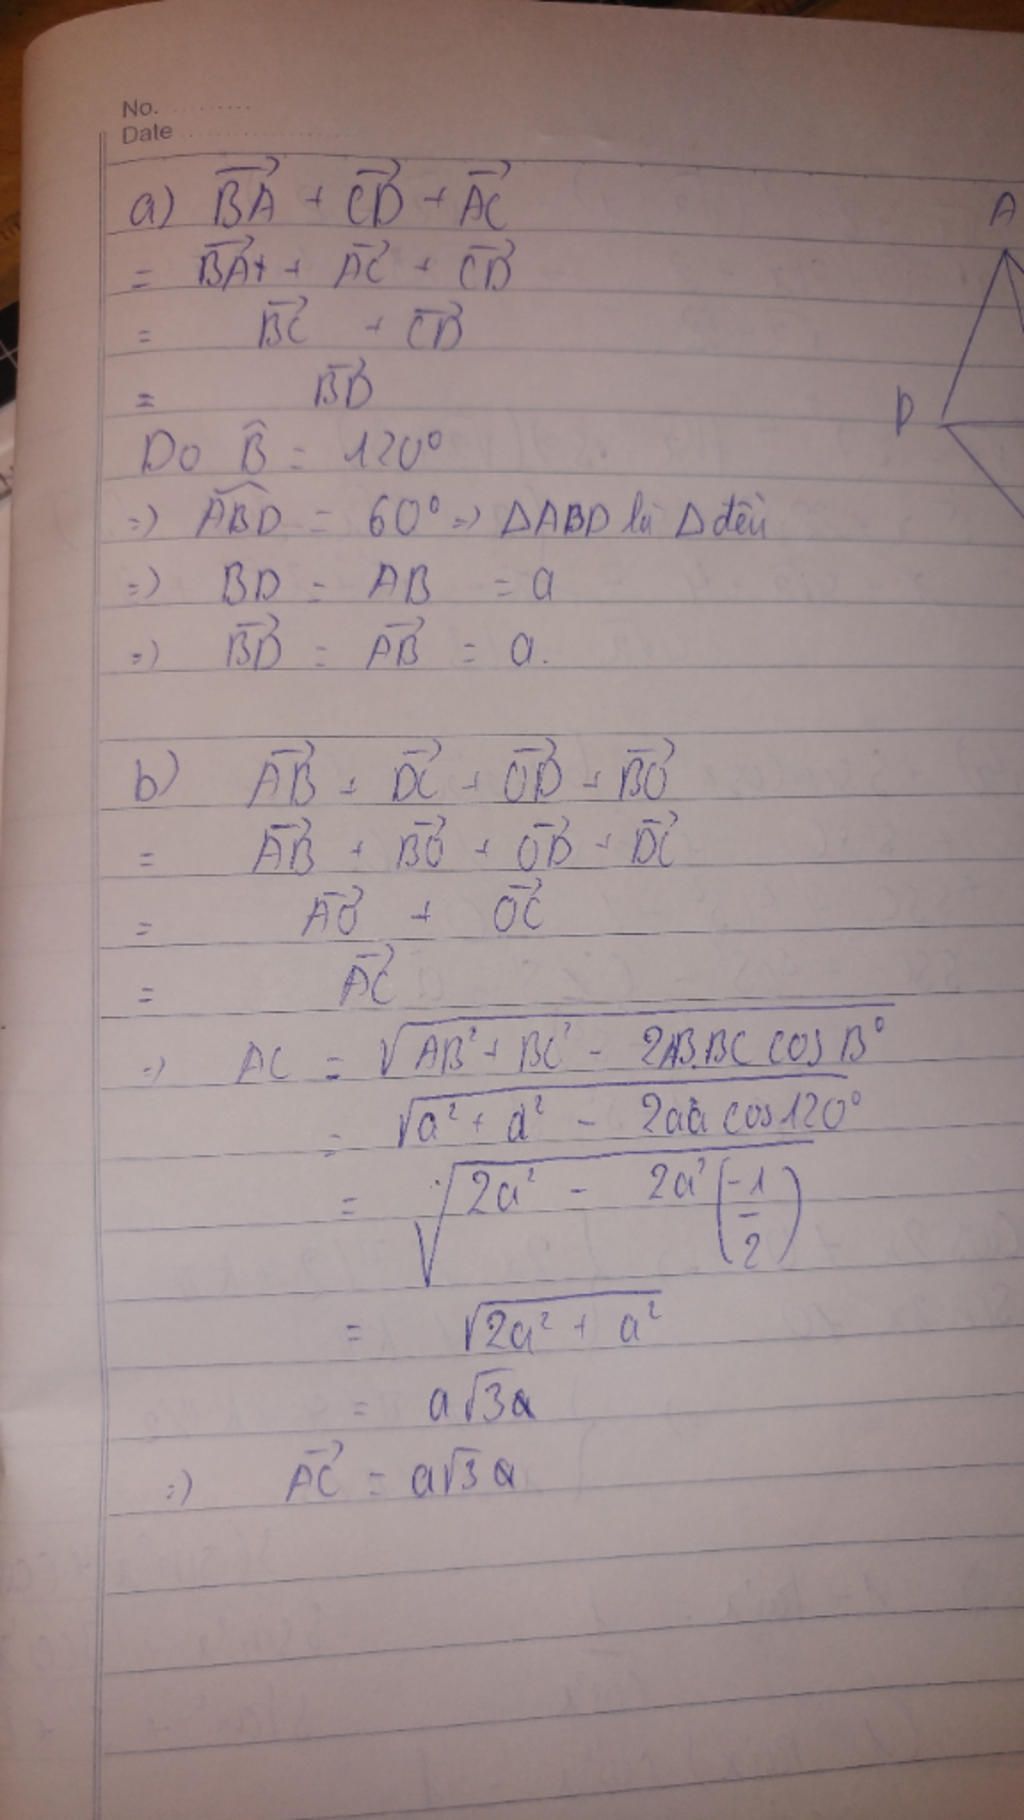 No. ..........
Date ....................
a) $\overrightarrow{BA} + \overrightarrow{CD} + \overrightarrow{AC}$
= $\overrightarrow{BA} + + \overrightarrow{AC} + \overrightarrow{CD}$
= $\overrightarrow{BC} + \overrightarrow{CD}$
= $\overrightarrow{BD}$
Do $\widehat{B}$ = 120°
=) $\widehat{ABD}$ = 60° =) ΔABD là Δ đều
=) BD = AB = a
=) $\overrightarrow{BD} = \overrightarrow{AB}$ = a.
b) $\overrightarrow{AB} + \overrightarrow{DC} + \overrightarrow{OD} + \overrightarrow{BO}$
= $\overrightarrow{AB} + \overrightarrow{BO} + \overrightarrow{OD} + \overrightarrow{DC}$
= $\overrightarrow{AO} + \overrightarrow{OC}$
= $\overrightarrow{AC}$
=) AC = $\sqrt{AB^2 + BC^2 - 2AB.BC \cos B^0}$
= $\sqrt{a^2 + a^2 - 2aa \cos 120^0}$
= $\sqrt{2a^2 - 2a^2 \left(\frac{-1}{2}\right)}$
= $\sqrt{2a^2 + a^2}$
= a√3a
=) $\overrightarrow{AC}$ = a√3a
A
D